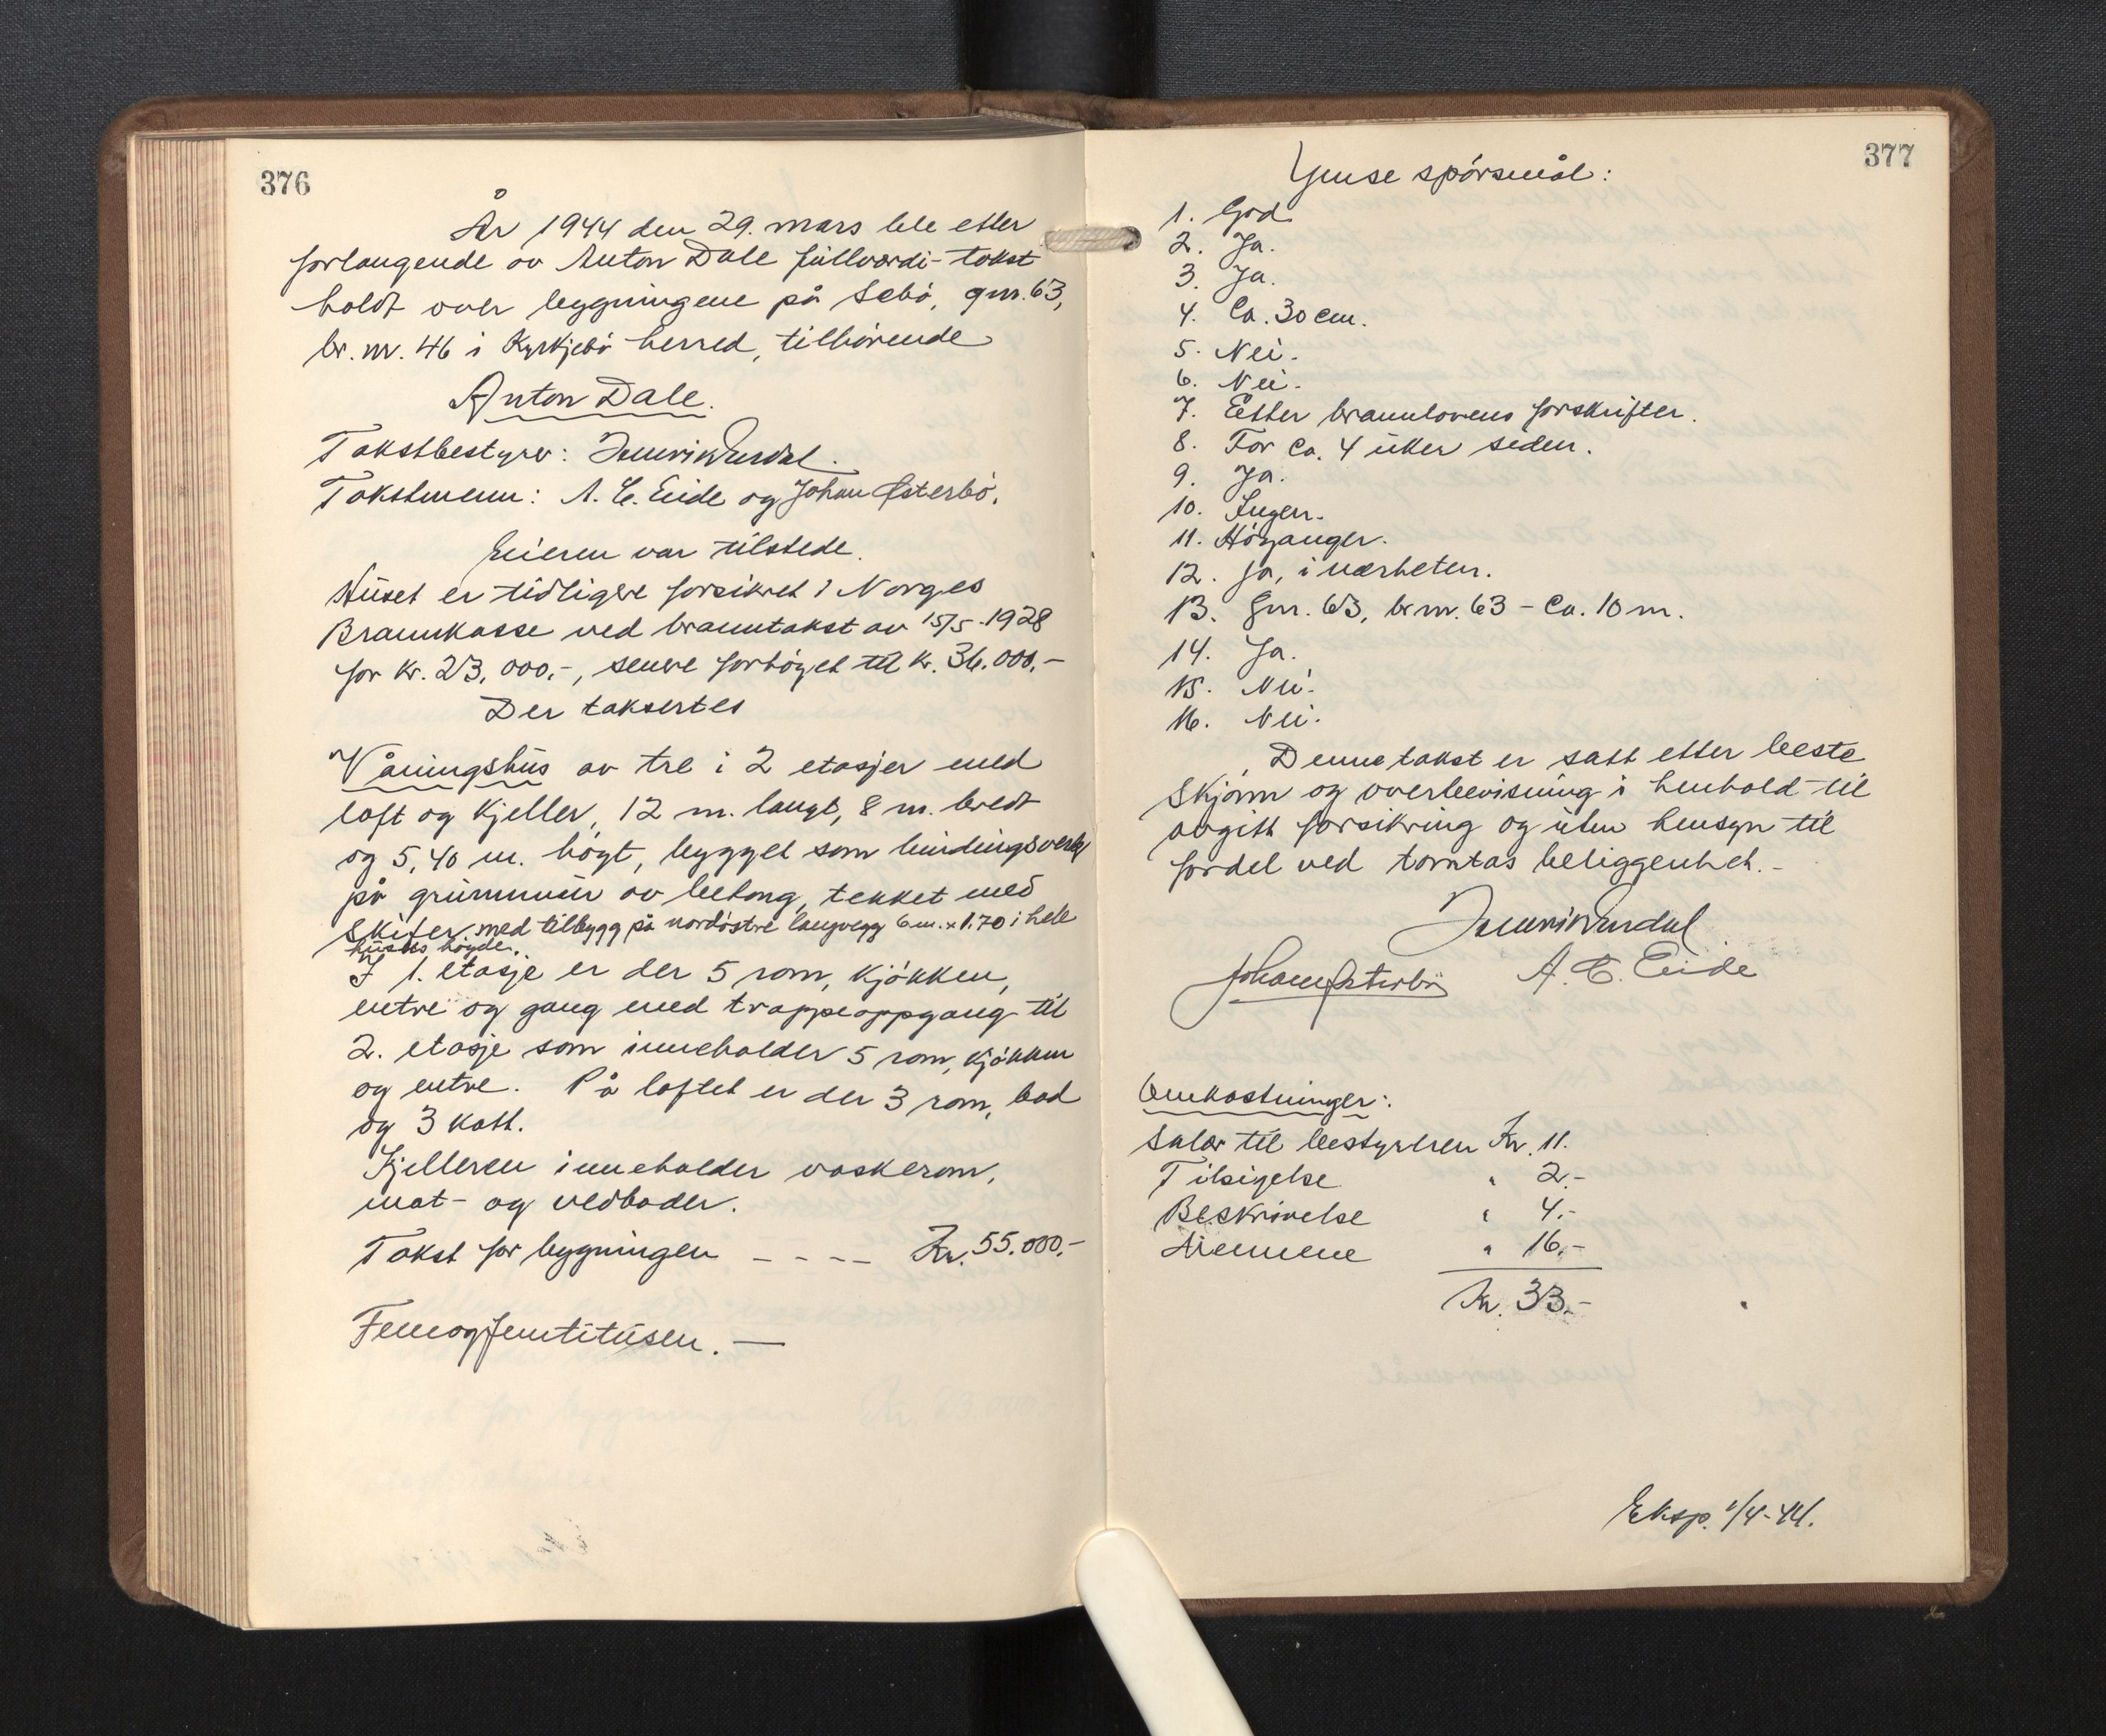 376
År 1944 den 29. mars ble etter
forlangende av Anton Dale fullverdi-takst
holdt over bygningene på Sæbö, gnr. 63,
br. nr. 46 i Kyrkjebö herred, tilhörende
Anton Dale.
Takstbestyrer:
Takstmenn: A. C. Eide og Johan Østerbö.
Eieren var tilstede.
Huset er tidligere forsikret i Norges
Brannkasse ved branntakst av 15/5-1928
for kr. 23.000.-, senere forhöyet til kr. 36.000.-
Der taksertes
Våningshus av tre i 2 etasjer med
loft og kjeller, 12 m. langt, 8 m. bredt
og 5,40 m. högt, bygget som bindingsverk
på grunnmur av betong, tekket med
Skifer. med tilbygg på nordöstre langvegg 6 m. x 1.70 i hele
husets höyde.
I 1. etasje er der 5 rom, kjökken,
entre og gang med trappeoppgang til
2. etasje som inneholder 5 rom, kjökken
og entre. På loftet er der 3 rom, bad
og 3 kott.
Kjelleren inneholder vaskerom,
mat- og vedboder.
Takst for bygningen - - - - Kr. 55.000.-
Femogfemtitusen. —
377
Ymse spörsmål:
1. God.
2. Ja.
3. Ja.
4. Ca. 30 cm.
5. Nei.
6. Nei.
7. Etter brannlovens forskrifter.
8. For ca. 4 uker siden.
9. Ja.
10. Ingen.
11. Höyanger.
12. Ja, i nærheten.
13. Gnr. 63, br.nr. 63 - Ca. 10 m.
14. Ja.
15. Nei.
16. Nei.
Denne takst er satt etter beste
Skjönn og overbevisning i henhold til
avgitt forsikring og uten hensyn til
fordel ved tomtas beliggenhet.-
Johan Østerbö A. C. Eide
Omkostninger:
Salær til bestyreren Kr. 11.
Tilsigelse " 2.-
Beskrivelse " 4.-
Mennene " 16.-
Kr. 33.-
Eksp. 1/4-44.